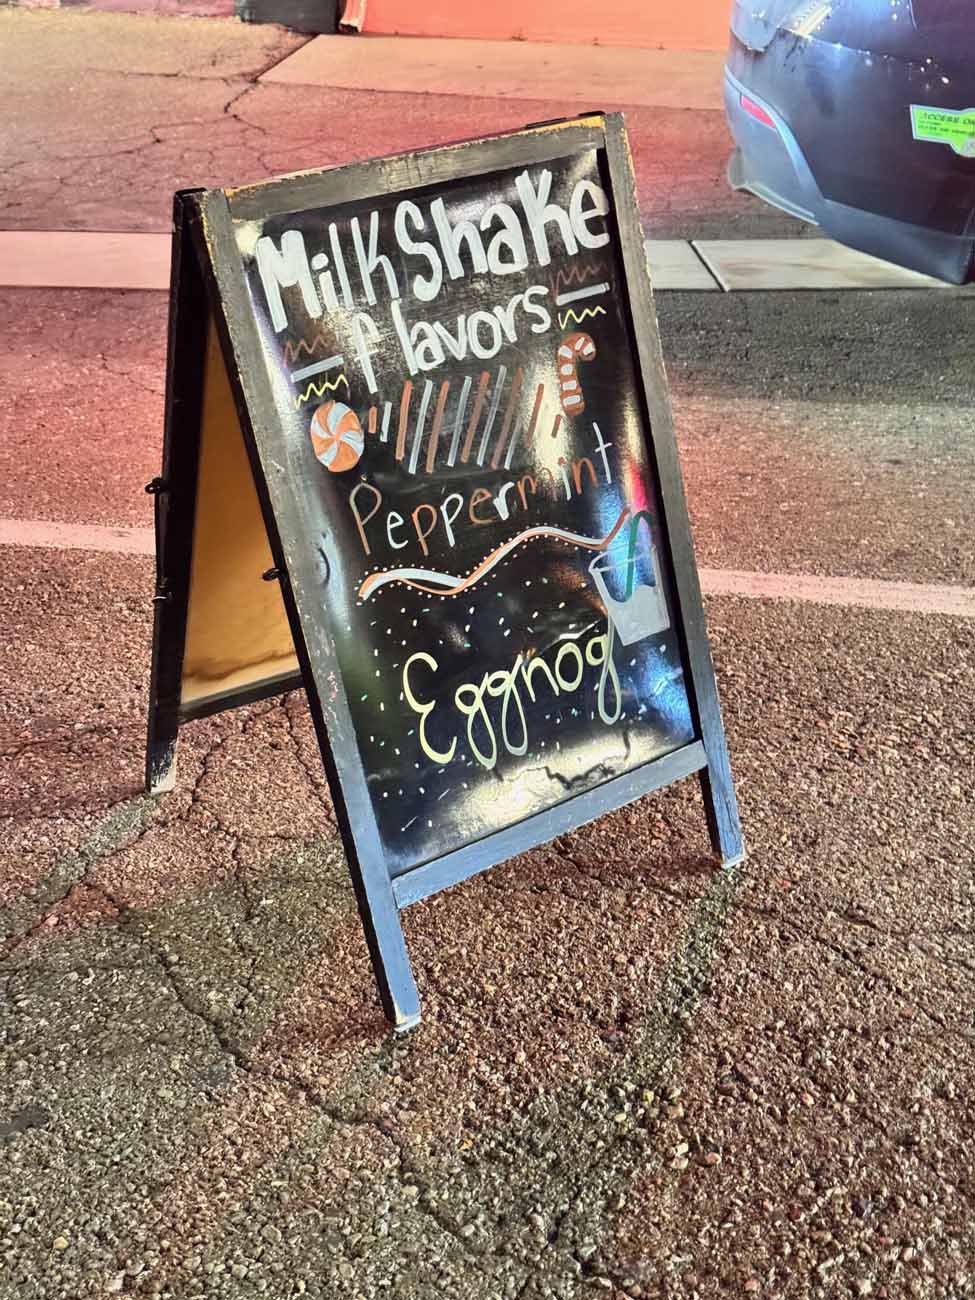 MilkShake
flavors
Peppermint
Eggnog